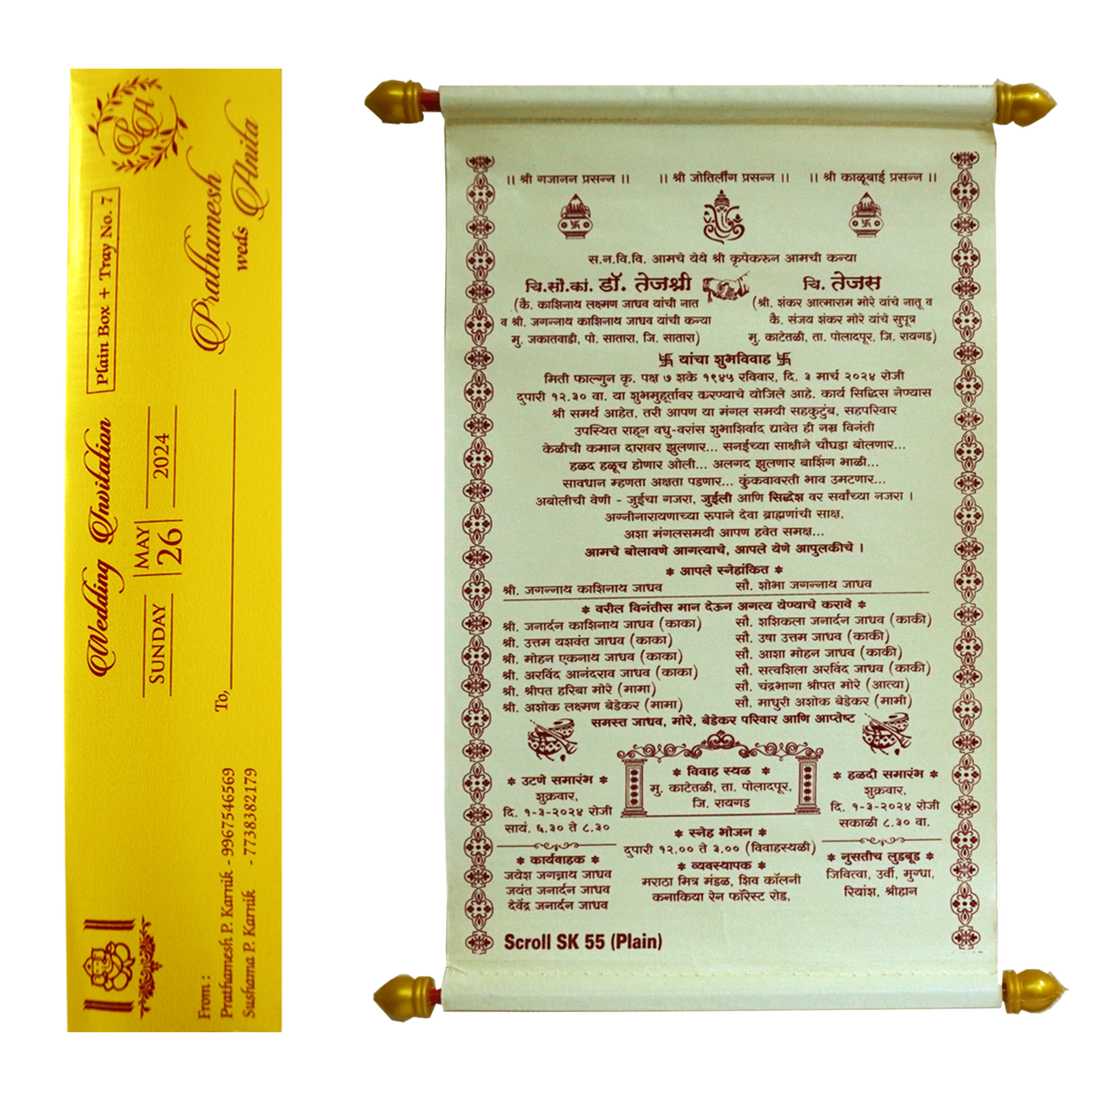 Prathamesh
weds Anita
Plain Box + Tray No. 7
Wedding Invitation
SUNDAY
MAY
26
2024
To,
From :
Prathamesh P. Karnik - 9967546569
Sushama P. Karnik - 7738382179
।। श्री गजानन प्रसन्न ।। ।। श्री जोतिर्लींग प्रसन्न ।। ।। श्री काळूबाई प्रसन्न ।।
स.न.वि.वि. आमचे येथे श्री कृपेकरुन आमची कन्या
चि.सौ.कां. डॉ. तेजश्री चि. तेजस
(कै. काशिनाथ लक्ष्मण जाधव यांची नात (श्री. शंकर आत्माराम मोरे यांचे नातू व
व श्री. जगन्नाथ काशिनाथ जाधव यांची कन्या कै. संजय शंकर मोरे यांचे सुपूत्र
मु. जकातवाडी, पो. सातारा, जि. सातारा) मु. काटेतळी, ता. पोलादपूर, जि. रायगड)
卐 यांचा शुभविवाह 卐
मिती फाल्गुन कृ. पक्ष ७ शके १९४५ रविवार, दि. ३ मार्च २०२४ रोजी
दुपारी १२.३० वा. या शुभमुहूर्तावर करण्याचे योजिले आहे. कार्य सिद्धिस नेण्यास
श्री समर्थ आहेत, तरी आपण या मंगल समयी सहकुटुंब, सहपरिवार
उपस्थित राहून वधु-वरांस शुभाशिर्वाद द्यावेत ही नम्र विनंती
केळीची कमान दारावर झुलणार... सनईच्या साक्षीने चौघडा बोलणार...
हळद हळूच होणार ओली... अलगद झुलणार बाशिंग भाळी...
सावधान म्हणता अक्षता पडणार... कुंकवावरती भाव उमटणार...
अबोलीची वेणी - जुईचा गजरा, जुईली आणि सिद्धेश वर सर्वांच्या नजरा ।
अग्नीनारायणाच्या रुपाने देवा ब्राह्मणांची साक्ष,
अशा मंगलसमयी आपण हवेत समक्ष...
आमचे बोलावणे आगत्याचे, आपले येणे आपुलकीचे ।
* आपले स्नेहांकित *
श्री. जगन्नाथ काशिनाथ जाधव सौ. शोभा जगन्नाथ जाधव
* वरील विनंतीस मान देऊन अगत्य येण्याचे करावे *
श्री. जनार्दन काशिनाथ जाधव (काका) सौ. शशिकला जनार्दन जाधव (काकी)
श्री. उत्तम यशवंत जाधव (काका) सौ. उषा उत्तम जाधव (काकी)
श्री. मोहन एकनाथ जाधव (काका) सौ. आशा मोहन जाधव (काकी)
श्री. अरविंद आनंदराव जाधव (काका) सौ. सत्वशिला अरविंद जाधव (काकी)
श्री. श्रीपत हरिबा मोरे (मामा) सौ. चंद्रभागा श्रीपत मोरे (आत्या)
श्री. अशोक लक्ष्मण बेडेकर (मामा) सौ. माधुरी अशोक बेडेकर (मामी)
समस्त जाधव, मोरे, बेडेकर परिवार आणि आप्तेष्ट
* उटणे समारंभ *
शुक्रवार,
दि. १-३-२०२४ रोजी
सायं. ६.३० ते ८.३०
* विवाह स्थळ *
मु. काटेतळी, ता. पोलादपूर,
जि. रायगड
* हळदी समारंभ *
शुक्रवार,
दि. १-३-२०२४ रोजी
सकाळी ८.३० वा.
* स्नेह भोजन *
दुपारी १२.०० ते ३.०० (विवाहस्थळी)
* कार्यवाहक *
जयेश जगन्नाथ जाधव
जयंत जनार्दन जाधव
देवेंद्र जनार्दन जाधव
* व्यवस्थापक *
मराठा मित्र मंडळ, शिव कॉलनी
कनाकिया रेन फॉरेस्ट रोड,
* नुसतीच लुडबूड *
जिवित्वा, उर्वी, मुग्धा,
रियांश, श्रीहान
Scroll SK 55 (Plain)